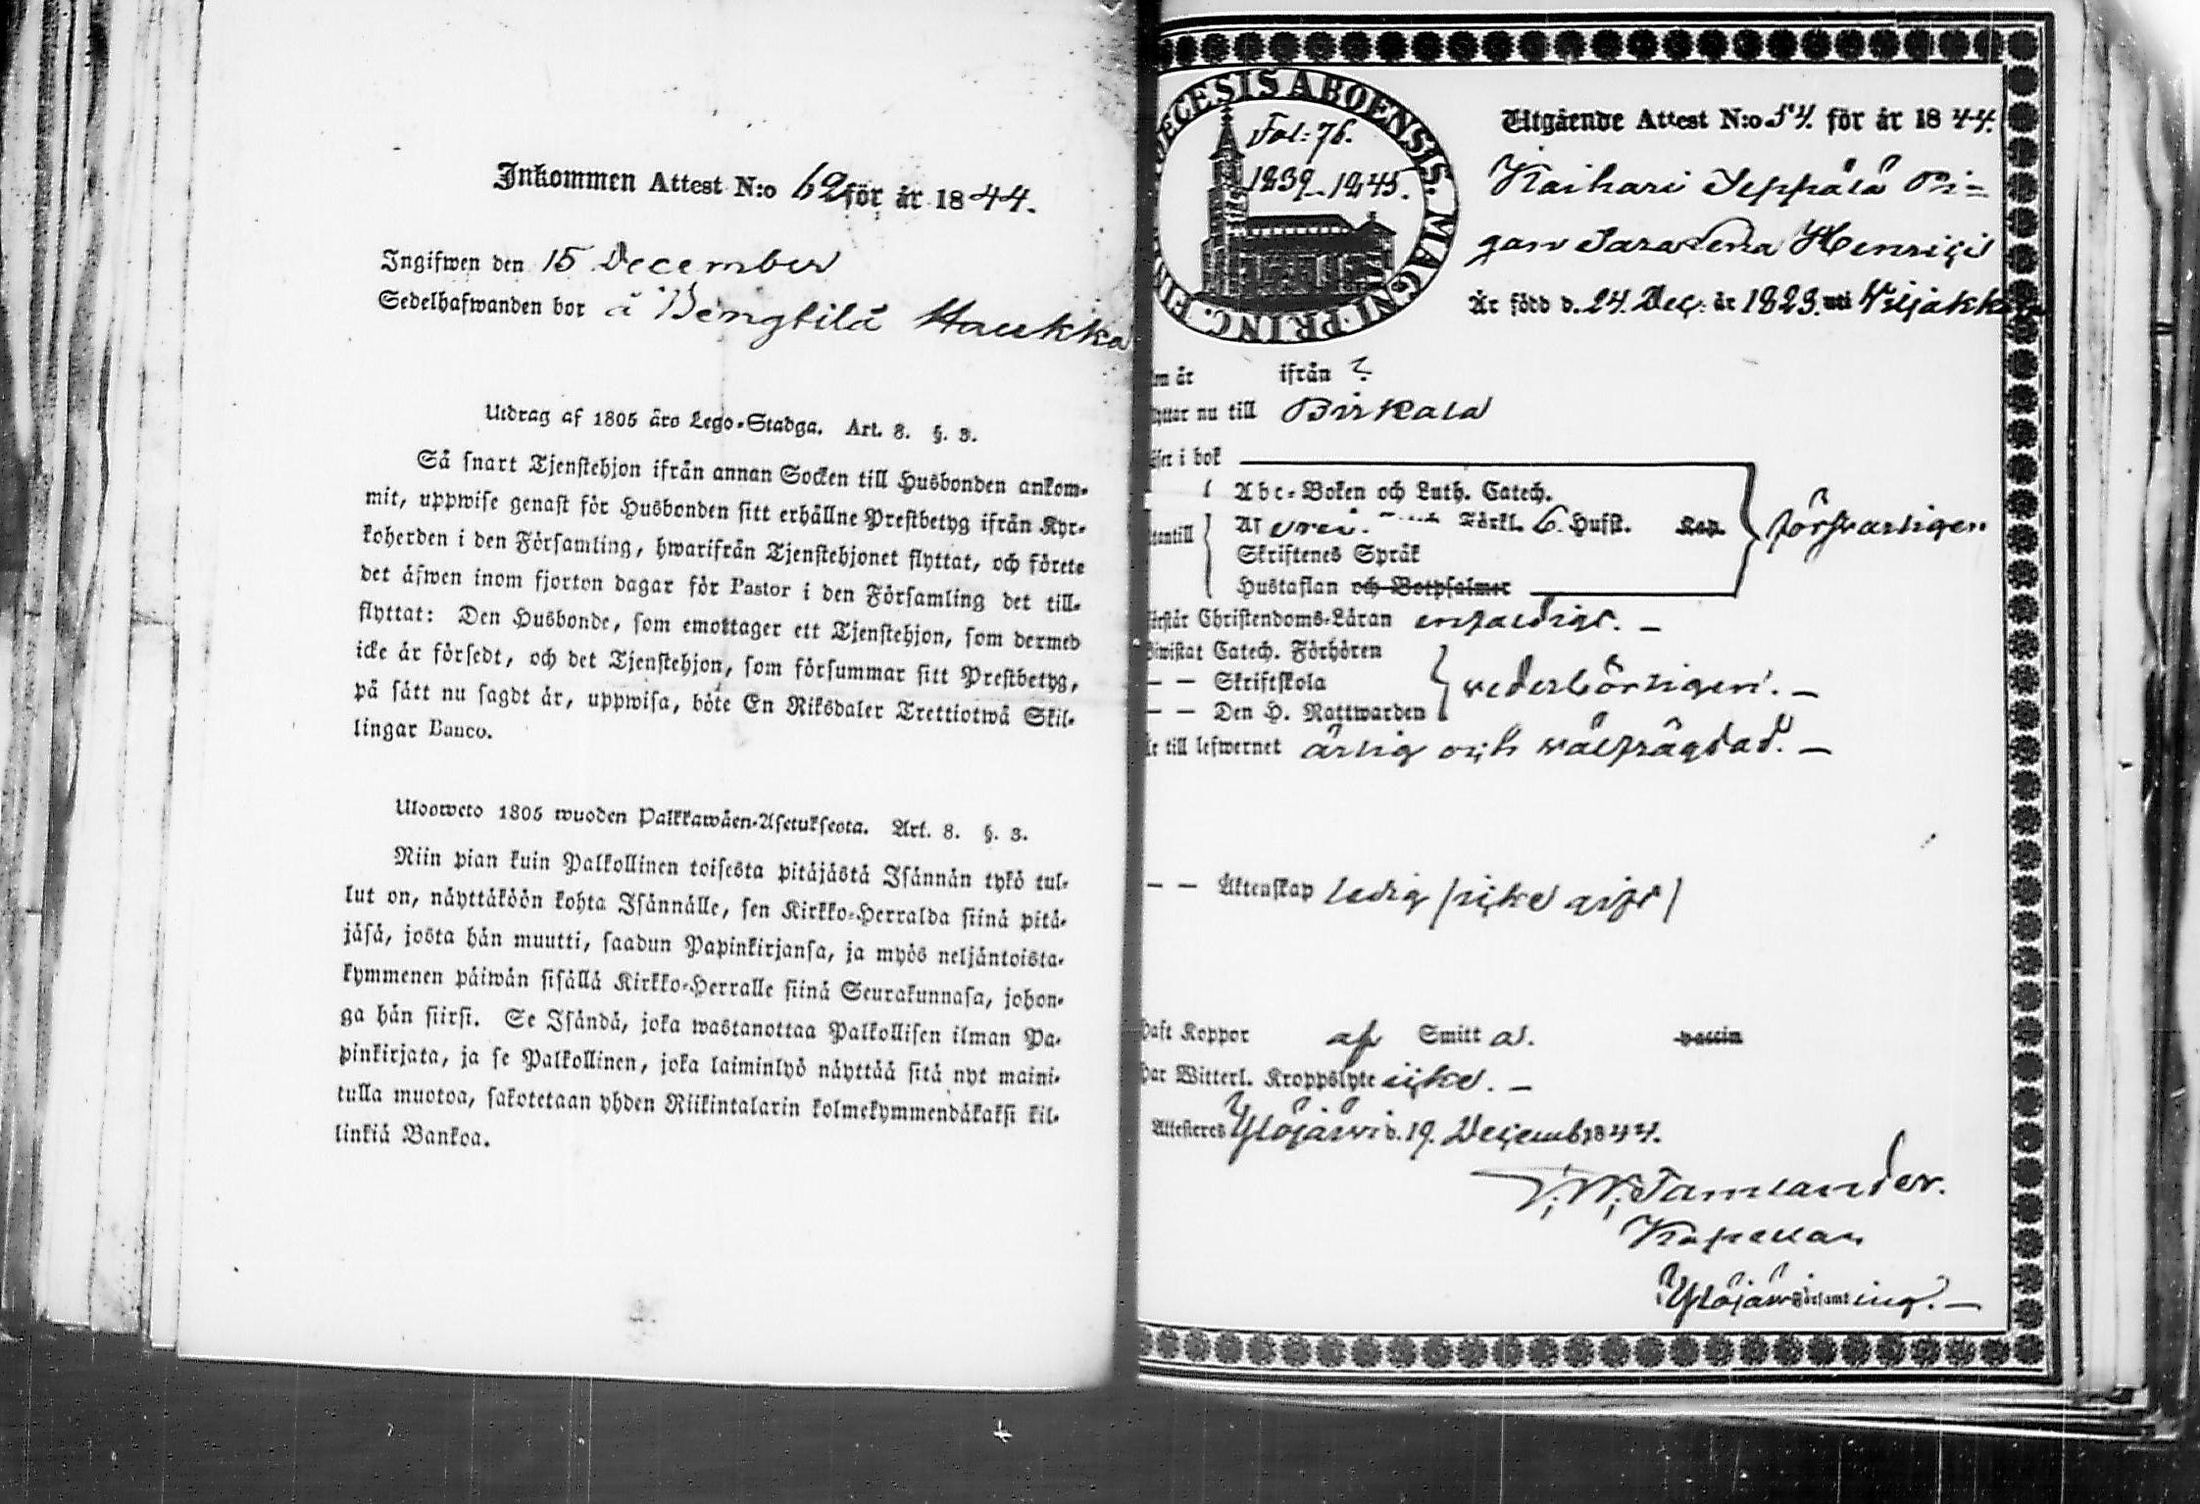 Inkommen Attest N:o 62 för år 1844.
Ingifwen den 15 December
Sedelhafwanden bor å Bengtilä Haukka
Utdrag af 1805 års Lego-Stadga. Art. 8. §. 3.
Så snart Tjenstehjon ifrån annan Socken till Husbonden ankom-
mit, uppwise genast för Husbonden sitt erhållne Prestbetyg ifrån Kyr-
koherden i den Församling, hwarifrån Tjenstehjonet flyttat, och förete
det äfwen inom fjorton dagar för Pastor i den Församling det till-
flyttat: Den Husbonde, som emottager ett Tjenstehjon, som dermed
icke är försedt, och det Tjenstehjon, som försummar sitt Prestbetyg,
på sätt nu sagdt är, uppwisa, böte En Riksdaler Trettiotwå Skil-
lingar Banco.
Ulosweto 1805 wuoden Palkkawäen-Asetuksesta. Art. 8. §. 3.
Niin pian kuin Palkollinen toisesta pitäjästä Isännän tykö tul-
lut on, näyttäköön kohta Isännälle, sen Kirkko-Herralda siinä pitä-
jäsä, josta hän muutti, saadun Papinkirjansa, ja myös neljäntoista-
kymmenen päiwän sisällä Kirkko-Herralle siinä Seurakunnasa, johon-
ga hän siirsi. Se Isändä, joka wastanottaa Palkollisen ilman Pa-
pinkirjata, ja se Palkollinen, joka laiminlyö näyttää sitä nyt maini-
tulla muotoa, sakotetaan yhden Riikintalarin kolmekymmendäkaksi kil-
linkiä Bankoa.
ECESIS ABOENSIS. MAGNI PRINC. FIN
Fol: 76.
1839-1845.
Utgående Attest N:o 54. för år 1844.
Kaihari Seppälä Pi-
gan Sara Lena Henrici
Är född d. 24. Dec: år 1823. uti Wiljakkala
om år ifrån ?
yttar nu till Birkala
äser i bok
Abc-Boken och Luth. Catech.
Förkl. 6. Hufst. Kap.
tantill
Skriftenes Språk
Hustaflan och Botpsalmer
försvarligen
örstår Christendoms-Läran enfaldigt. —
Biwistat Catech. Förhören
— — Skriftskola
— — Den H. Nattwarden
vederbörligen. —
e till lefwernet ärlig och välfrägdad. —
— — Äktenskap ledig /icke gift/
haft Koppor af Smitt al. vaccin
har Witterl. Kroppslyte icke. —
Attesteres Ylöjärvi d. 19. Decemb 1844.
J. W. Tamlander.
Kapellan
Ylöjärvi Församling. —